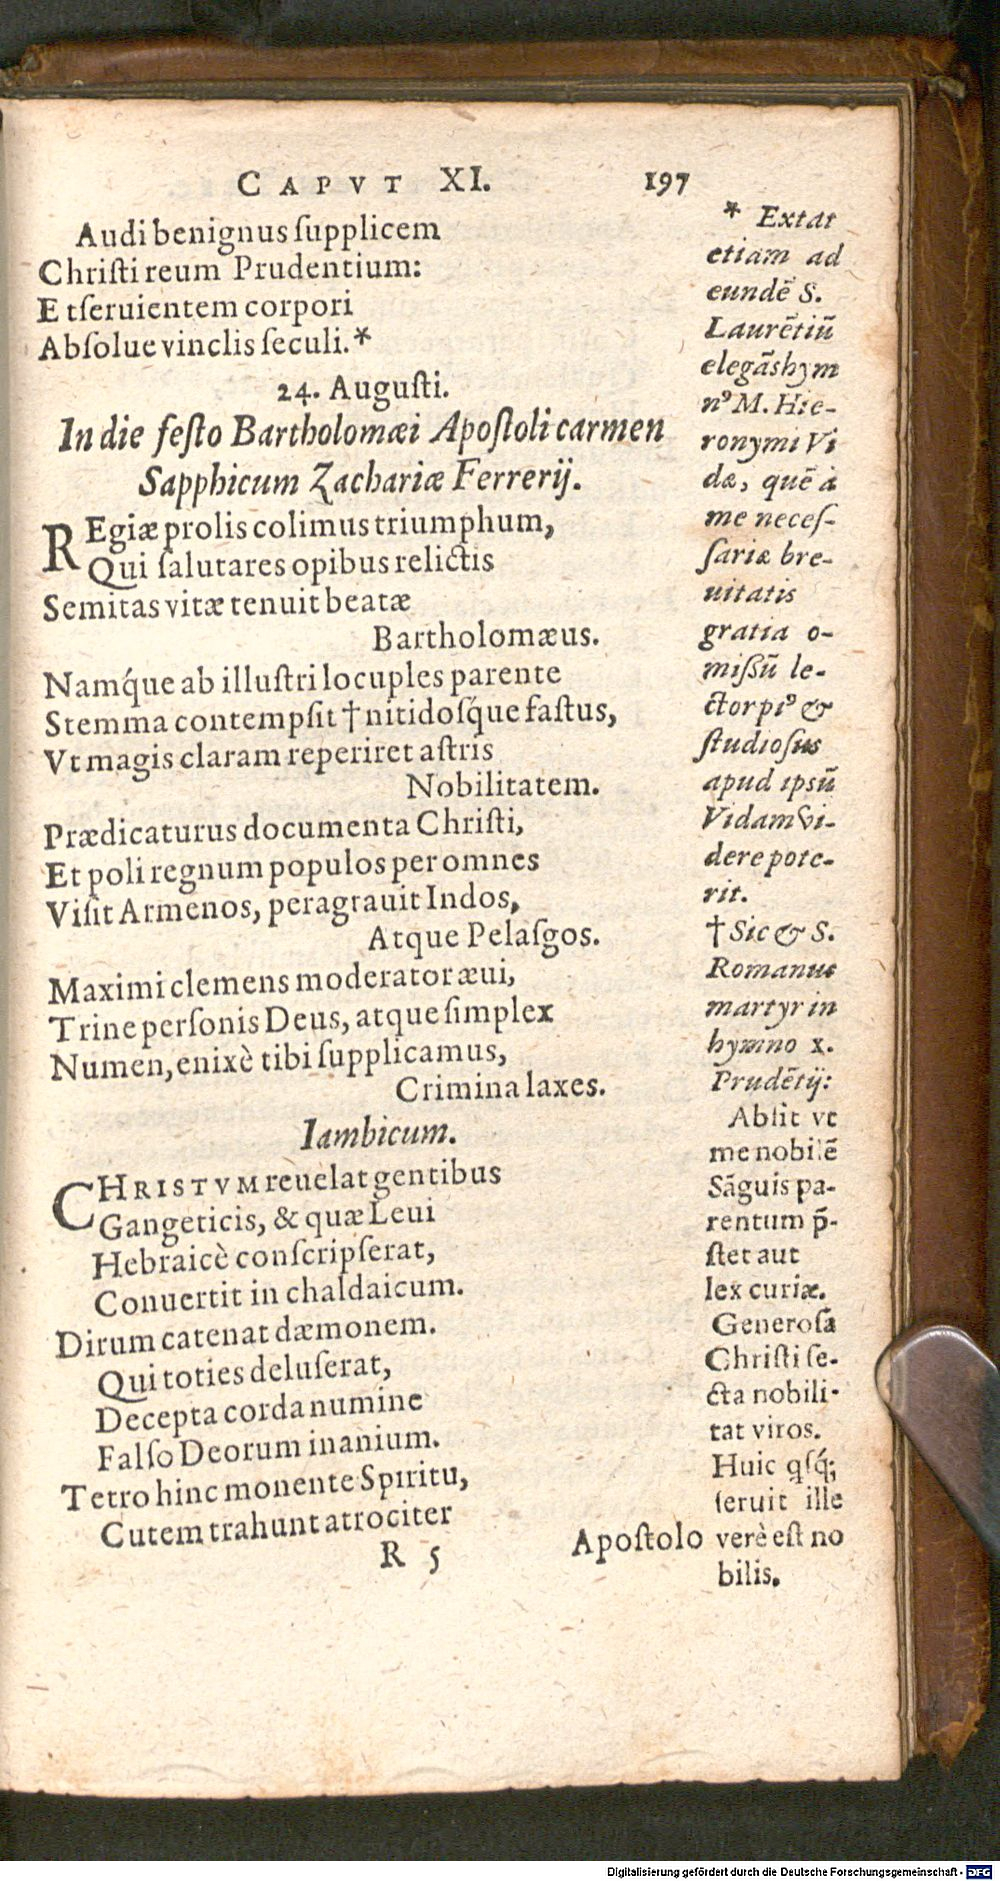 CAPVT XI. 197
Audi benignus ſupplicem
Chriſti reum Prudentium:
E tſeruientem corpori
Abſolue vinclis ſeculi.*
24. Auguſti.
In die feſto Bartholomæi Apoſtoli carmen
Sapphicum Zachariæ Ferrerij.
REgiæ prolis colimus triumphum,
Qui ſalutares opibus relictis
Semitas vitæ tenuit beatæ
Bartholomæus.
Namq́ue ab illuſtri locuples parente
Stemma contempſit † nitidoſq́ue faſtus,
Vt magis claram reperiret aſtris
Nobilitatem.
Prædicaturus documenta Chriſti,
Et poli regnum populos per omnes
Viſit Armenos, peragrauit Indos,
Atque Pelaſgos.
Maximi clemens moderator æui,
Trine perſonis Deus, atque ſimplex
Numen, enixè tibi ſupplicamus,
Crimina laxes.
Iambicum.
CHRISTVM reuelat gentibus
Gangeticis, & quæ Leui
Hebraicè conſcripſerat,
Conuertit in chaldaicum.
Dirum catenat dæmonem.
Qui toties deluſerat,
Decepta corda numine
Falſo Deorum inanium.
Tetro hinc monente Spiritu,
Cutem trahunt atrociter
R 5 Apoſtolo
* Extat
etiam ad
eundẽ S.
Laurẽtiũ
elegãs hym
nꝰ M. Hie-
ronymi Vi
dæ, quẽ à
me neceſ-
ſariæ bre-
uitatis
gratia o-
miſſũ le-
ctor piꝰ &
ſtudioſus
apud ipsũ
Vidam vi-
dere pote-
rit.
† Sic & S.
Romanus
martyr in
hymno x.
Prudẽtij:
Abſit vt
me nobilẽ
Sãguis pa-
rentum p̃-
ſtet aut
lex curiæ.
Generoſã
Chriſti ſe-
cta nobili-
tat viros.
Huic qſq́;
ſeruit ille
verè eſt no
bilis.
Digitalisierung gefördert durch die Deutsche Forschungsgemeinschaft - DFG